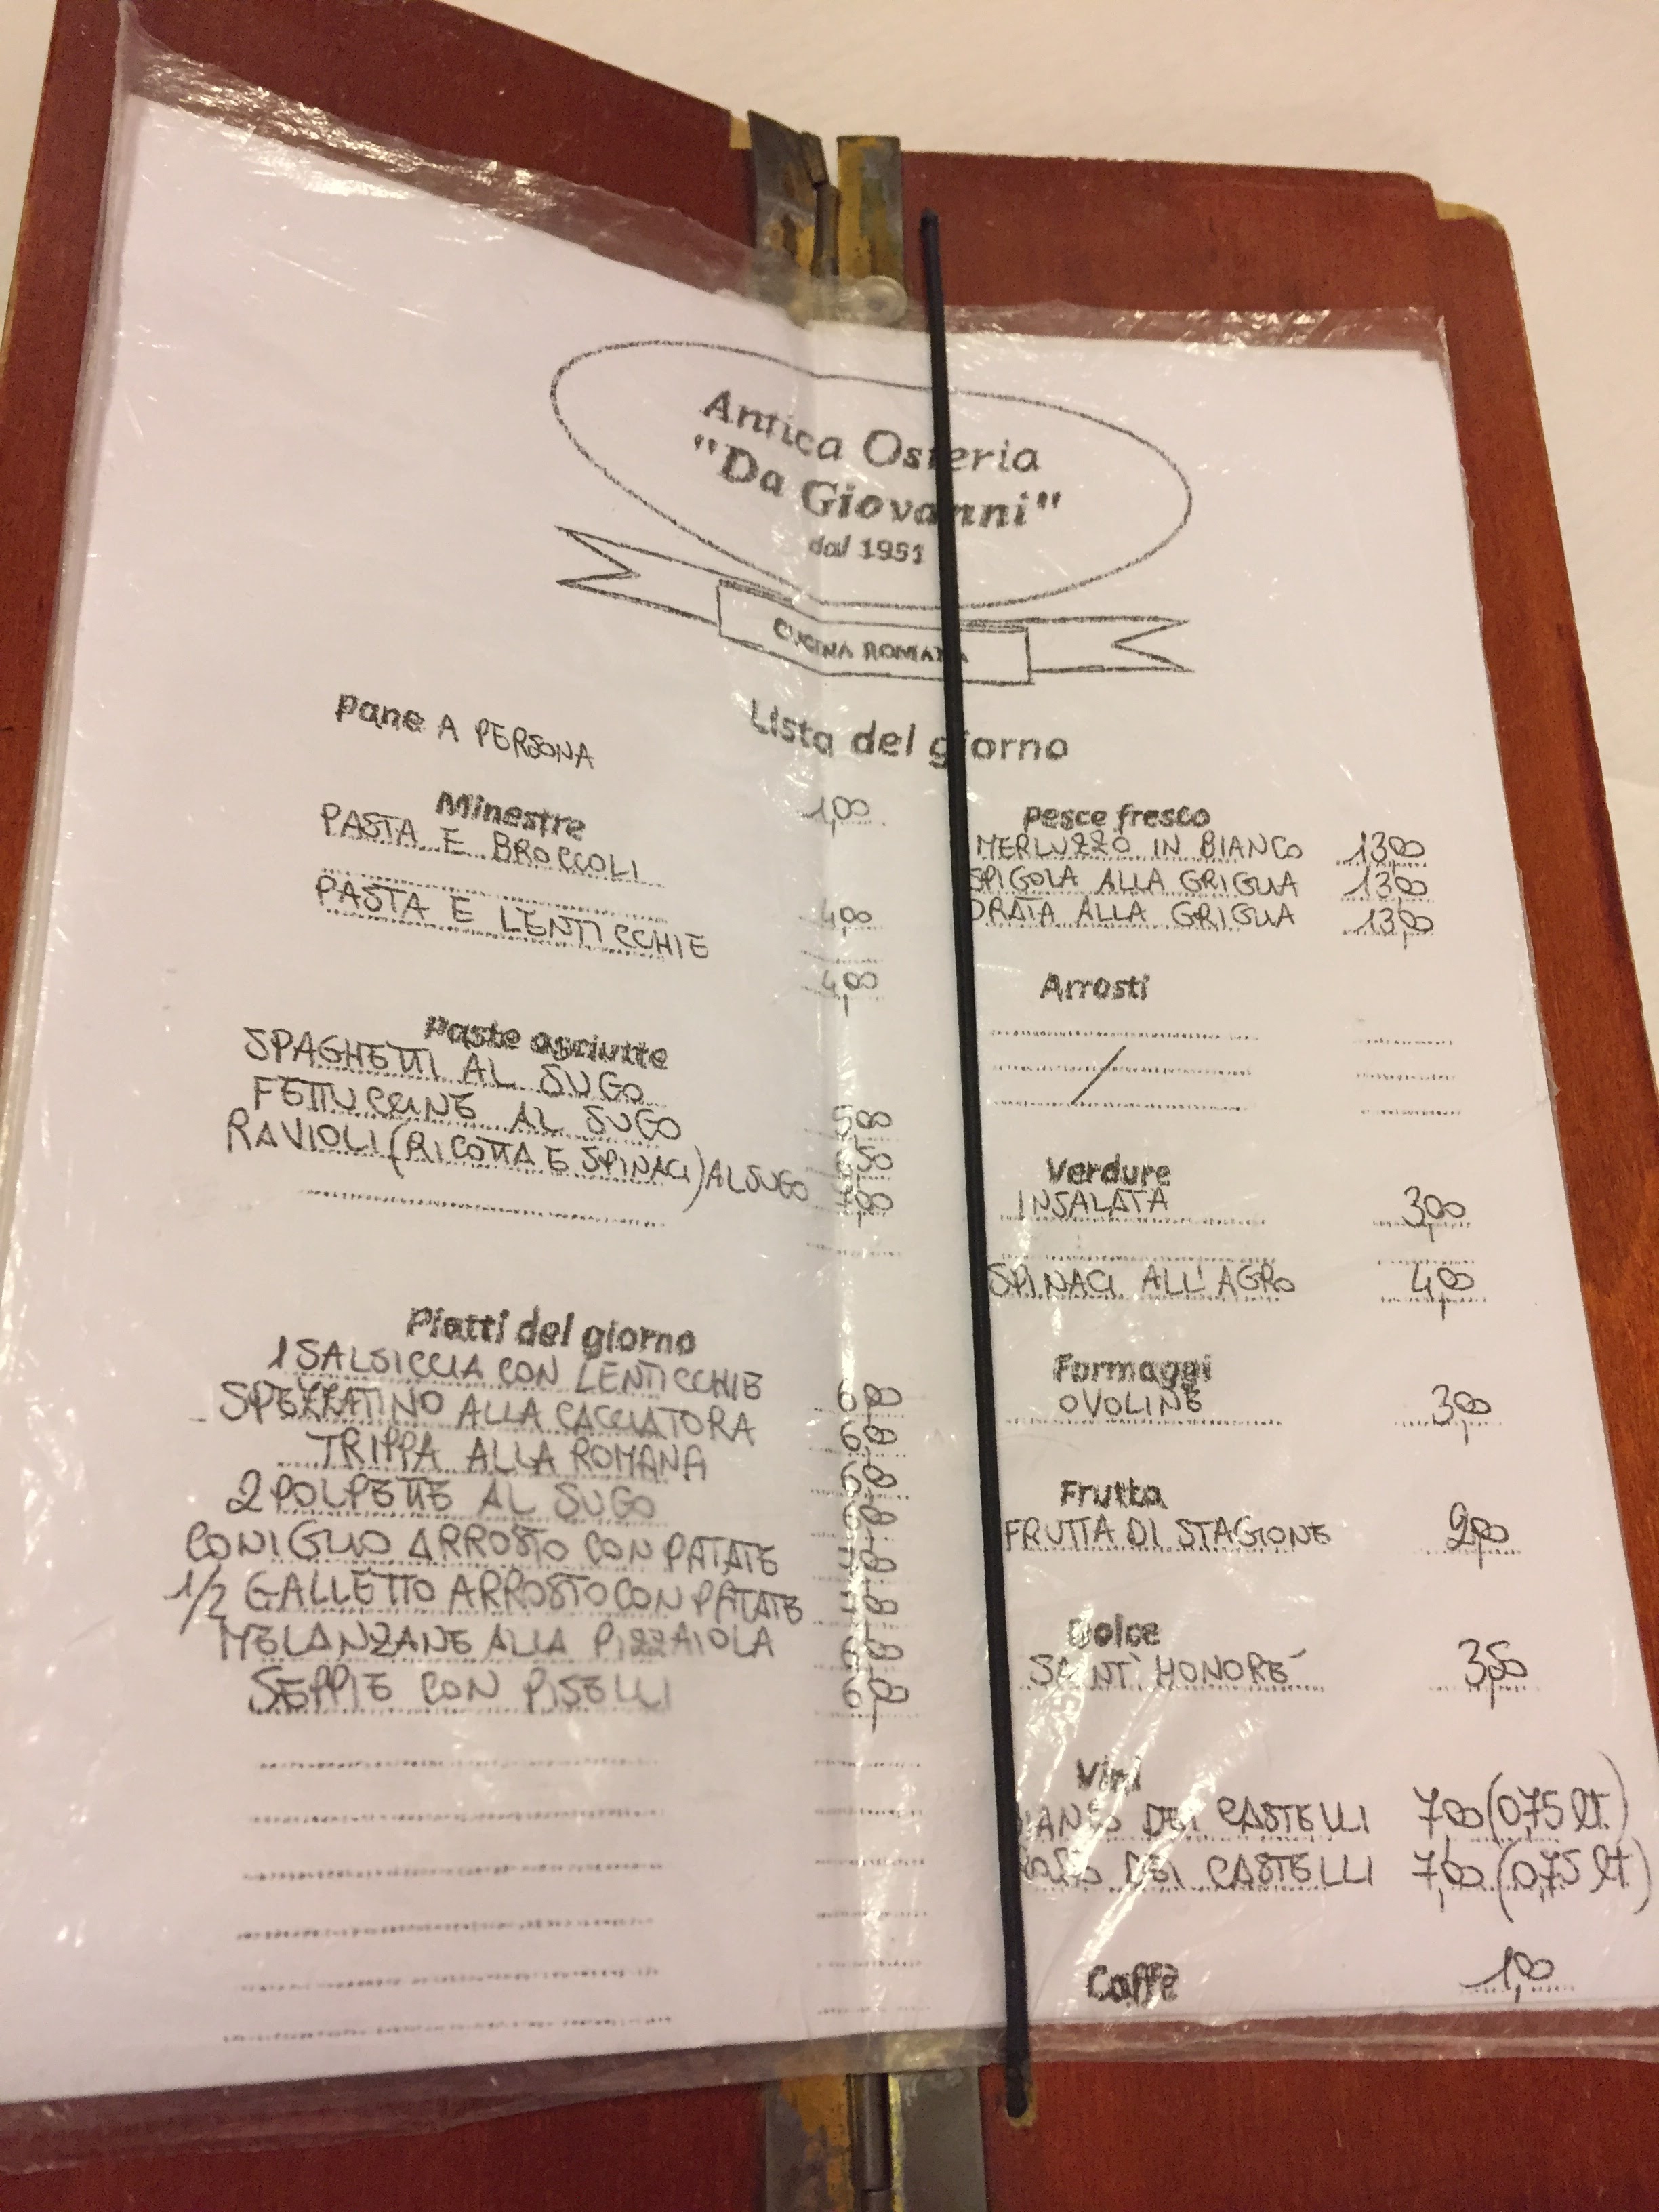 Antica Osteria
"Da Giovanni"
dal 1951
CUCINA ROMANA
Lista del giorno
Pane A PERSONA 1,00
Minestre
PASTA E BROCCOLI 4,00
PASTA E LENTICCHIE 4,00
Paste asciutte
SPAGHETTI AL SUGO 5,00
FETTUCCINE AL SUGO
RAVIOLI (RICOTTA E SPINACI) AL SUGO 7,00
Piatti del giorno
1 SALSICCIA CON LENTICCHIE 6,00
SPEZZATINO ALLA CACCIATORA 6,00
TRIPPA ALLA ROMANA 6,00
2 POLPETTE AL SUGO 6,00
CONIGLIO ARROSTO CON PATATE 7,00
1/2 GALLETTO ARROSTO CON PATATE 7,00
MELANZANE ALLA PIZZAIOLA 6,00
SEPPIE CON PISELLI 6,00
Pesce fresco
MERLUZZO IN BIANCO 13,00
SPIGOLA ALLA GRIGLIA 13,00
ORATA ALLA GRIGLIA 13,00
Arrosti
/
Verdure
INSALATA 3,00
SPINACI ALL'AGRO 4,00
Formaggi
OVOLINE 3,00
Frutta
FRUTTA DI STAGIONE 2,00
Dolce
SAINT' HONORÉ 3,50
Vini
BIANCO DEI CASTELLI 7,00 (0,75 lt.)
ROSSO DEI CASTELLI 7,00 (0,75 lt)
Caffè 1,00